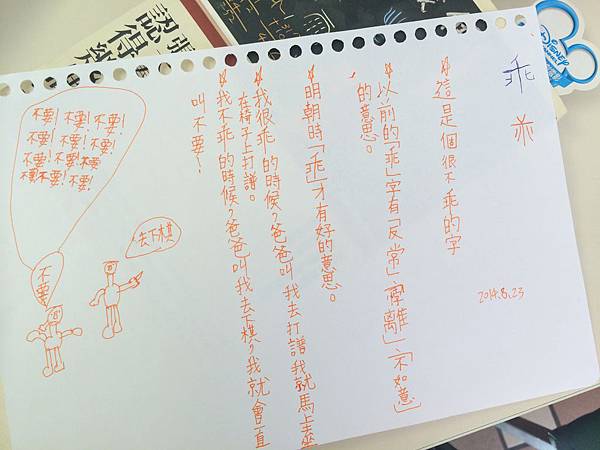 乖
2014.8.23
*這是個很不乖的字
*以前的「乖」字有「反常」「乖離」「不如意」
的意思。
*明朝時「乖」才有好的意思。
*我很乖的時候，爸爸叫我去打譜我就馬上坐
在椅子上打譜。
*我不乖的時候，爸爸叫我去下棋，我就會一直
叫不要~
去下棋
不要
不要!不要!不要!
不要!不要!不要!
不要!不要!不要
不要不要!不要!
DISNEY
認得